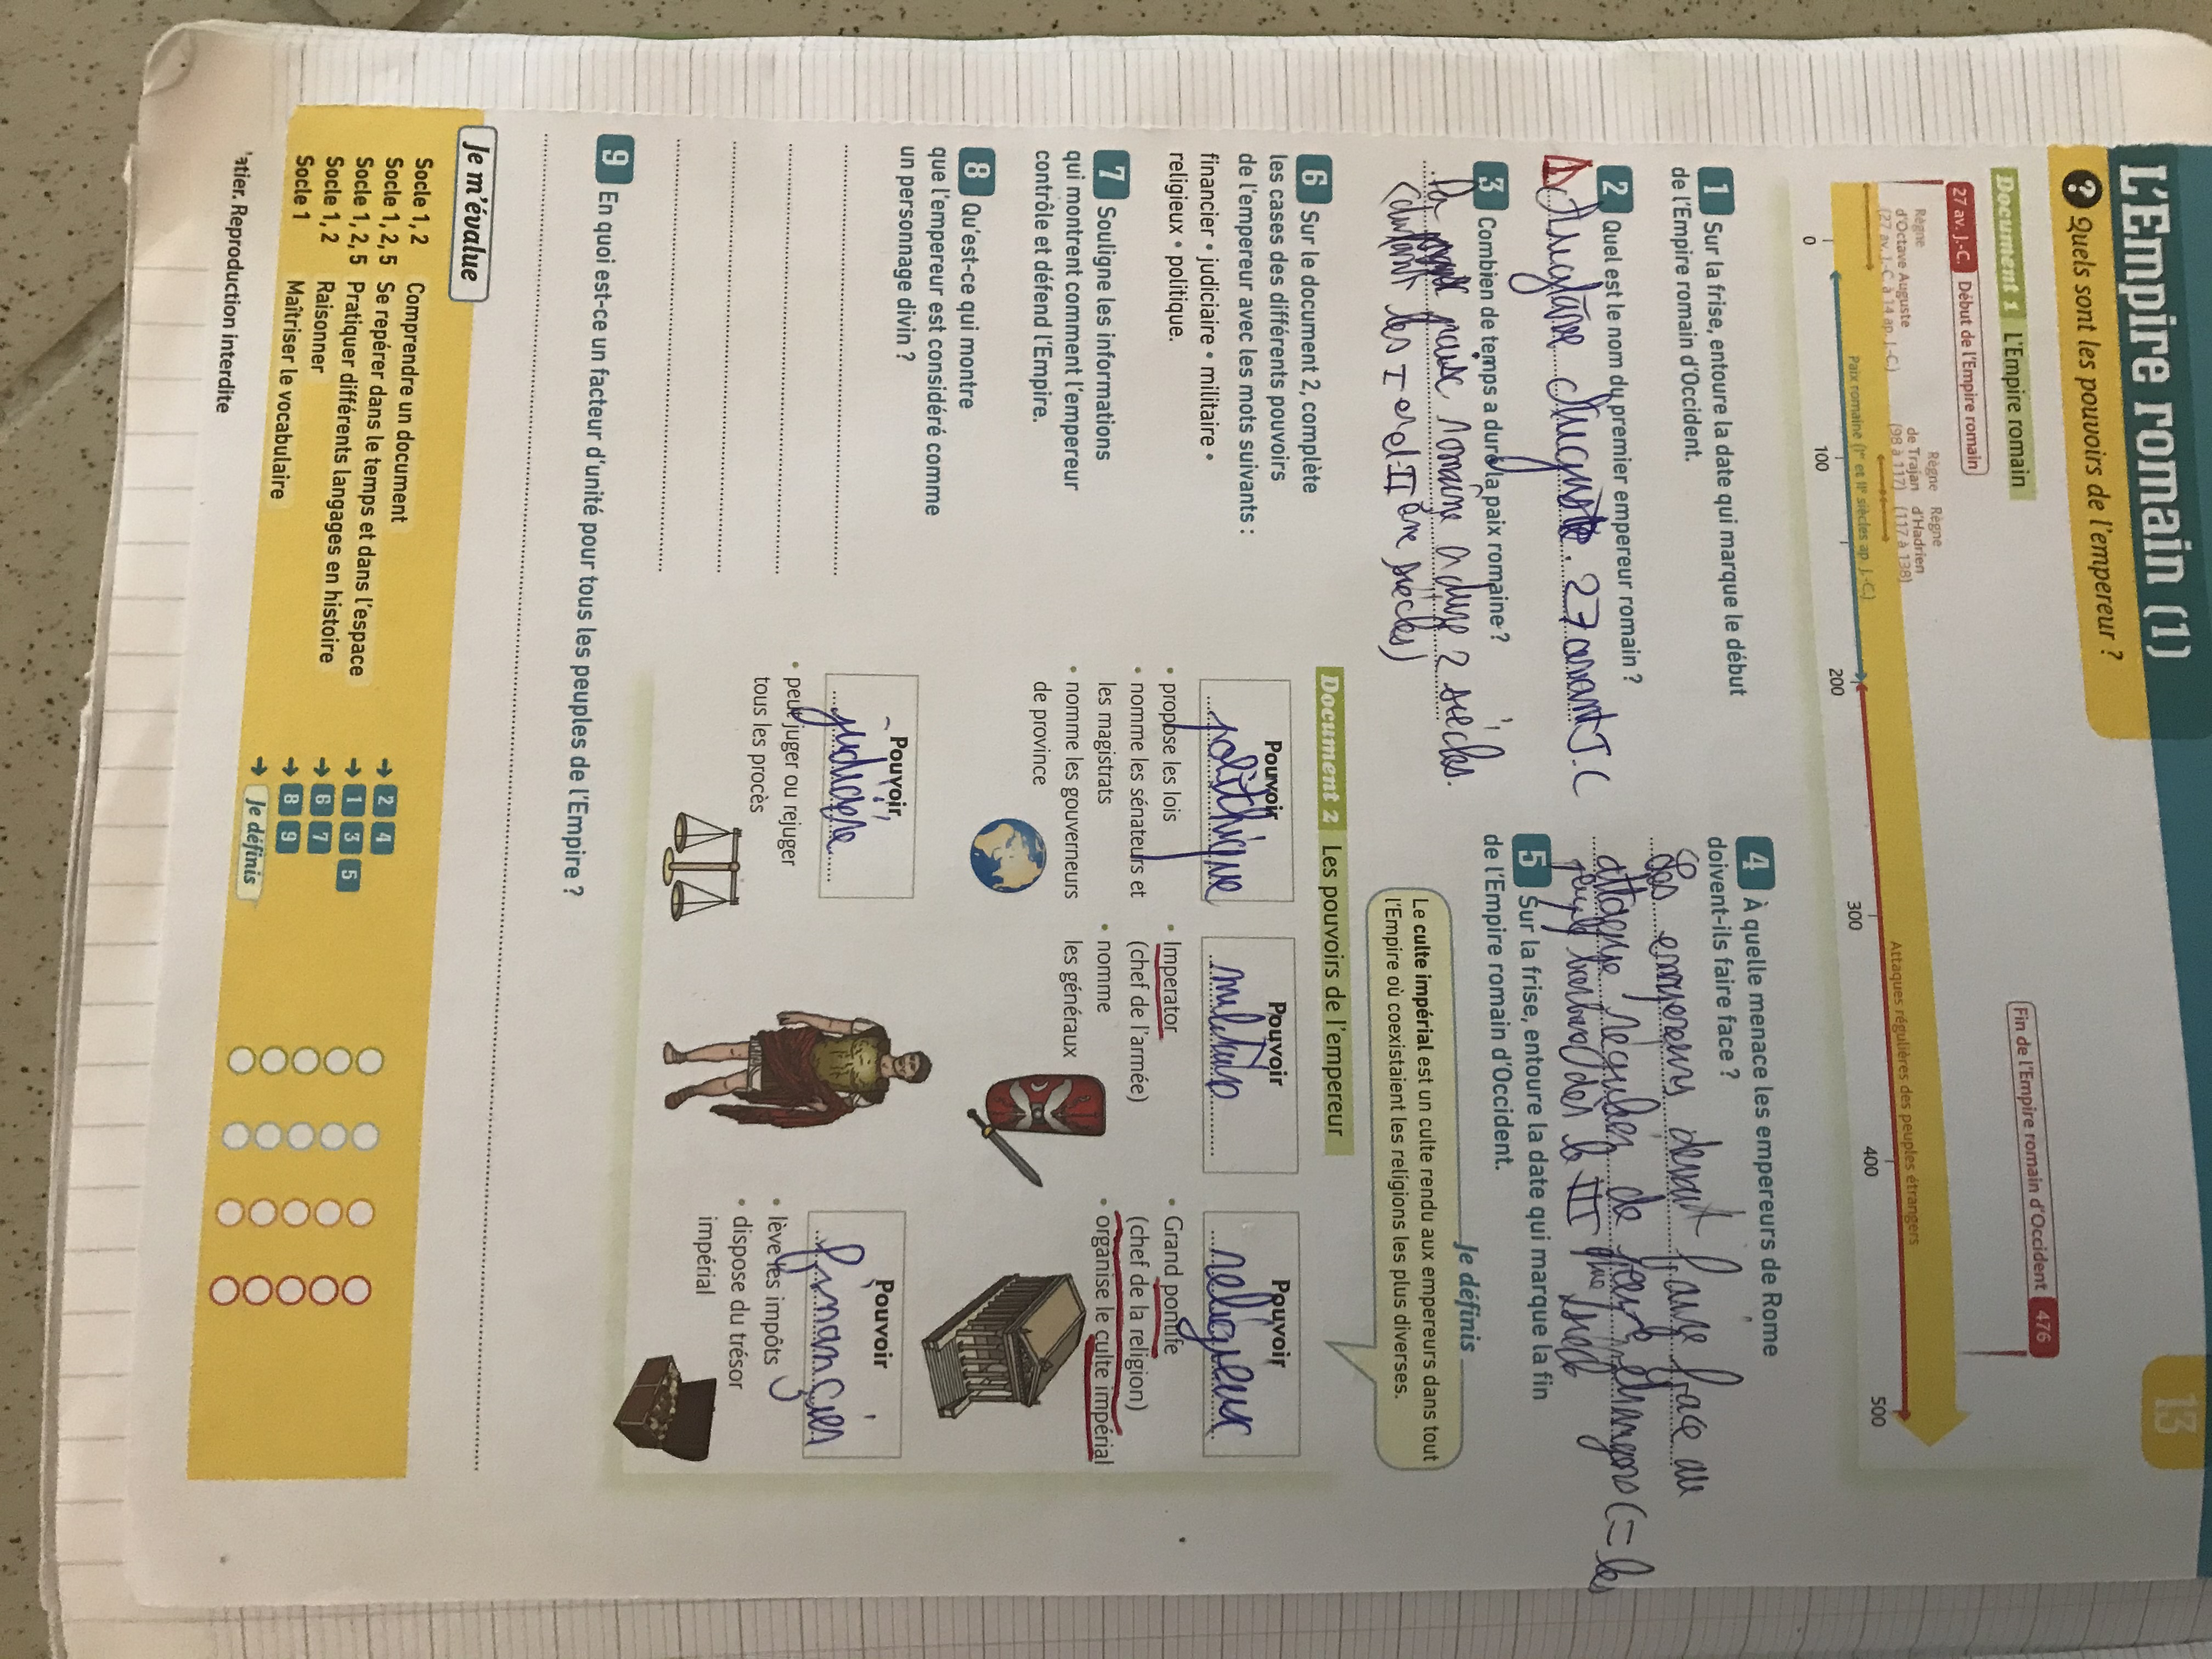 L'Empire romain (1)
13
? Quels sont les pouvoirs de l'empereur ?
Document 1 L'Empire romain
27 av. J.-C. Début de l'Empire romain
Fin de l'Empire romain d'Occident 476
Règne
d'Octave Auguste
(27 av. J.-C. à 14 ap. J.-C.)
Règne
de Trajan
(98 à 117)
Règne
d'Hadrien
(117 à 138)
Paix romaine (Ier et IIe siècles ap. J.-C.)
Attaques régulières des peuples étrangers
0
100
200
300
400
500
1 Sur la frise, entoure la date qui marque le début
de l'Empire romain d'Occident.
2 Quel est le nom du premier empereur romain ?
27 avant J.C
3 Combien de temps a duré la paix romaine ?
la paix romaine a dure 2 siècles.
(durant les I er et II ème siècles)
4 À quelle menace les empereurs de Rome
doivent-ils faire face ?
Les empereurs doivent faire face au
attaque régulier de peuple étrangers (= les
peuple barbare) dès le III
5 Sur la frise, entoure la date qui marque la fin
de l'Empire romain d'Occident.
Je définis
Le culte impérial est un culte rendu aux empereurs dans tout
l'Empire où coexistaient les religions les plus diverses.
6 Sur le document 2, complète
les cases des différents pouvoirs
de l'empereur avec les mots suivants :
financier • judiciaire • militaire •
religieux • politique.
7 Souligne les informations
qui montrent comment l'empereur
contrôle et défend l'Empire.
8 Qu'est-ce qui montre
que l'empereur est considéré comme
un personnage divin ?
Document 2 Les pouvoirs de l'empereur
Pouvoir
polithique
• propose les lois
• nomme les sénateurs et
les magistrats
• nomme les gouverneurs
de province
Pouvoir
• Imperator
(chef de l'armée)
• nomme
les généraux
Pouvoir
religieux
• Grand pontife
(chef de la religion)
• organise le culte impérial
Pouvoir
• peut juger ou rejuger
tous les procès
Pouvoir
financier
• lève les impôts
• dispose du trésor
impérial
9 En quoi est-ce un facteur d'unité pour tous les peuples de l'Empire ?
Je m'évalue
Socle 1, 2 Comprendre un document → 2 4
Socle 1, 2, 5 Se repérer dans le temps et dans l'espace → 1 3 5
Socle 1, 2, 5 Pratiquer différents langages en histoire → 6 7
Socle 1, 2 Raisonner → 8 9
Socle 1 Maîtriser le vocabulaire → Je définis
atier. Reproduction interdite